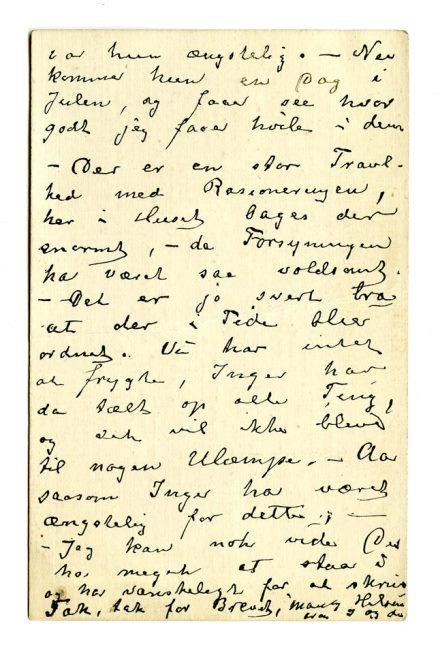 var hun ængstelig. – Nu
kommer hun en Dag i
Julen, og faar see hvor
godt jeg faar hvile i dem
– Der er en stor Travl-
hed med Rasioneringen,
her i Huset bages der
enormt, – da Forsyningen
ha været saa voldsomt.
– Det er jo svært bra
at der i Tide blir
ordnet. Vi har intet
at frygte, Inger har
da tælt op alle Ting,
og det vil ikke blive
til nogen Ulæmpe. –
saasom Inger ha været
ængstelig for dette; –
– Jeg kan nok vide De
ha meget at staa i
og har vanskeligt for at skrive
Tak, tak for Brevet, mange Hilsen